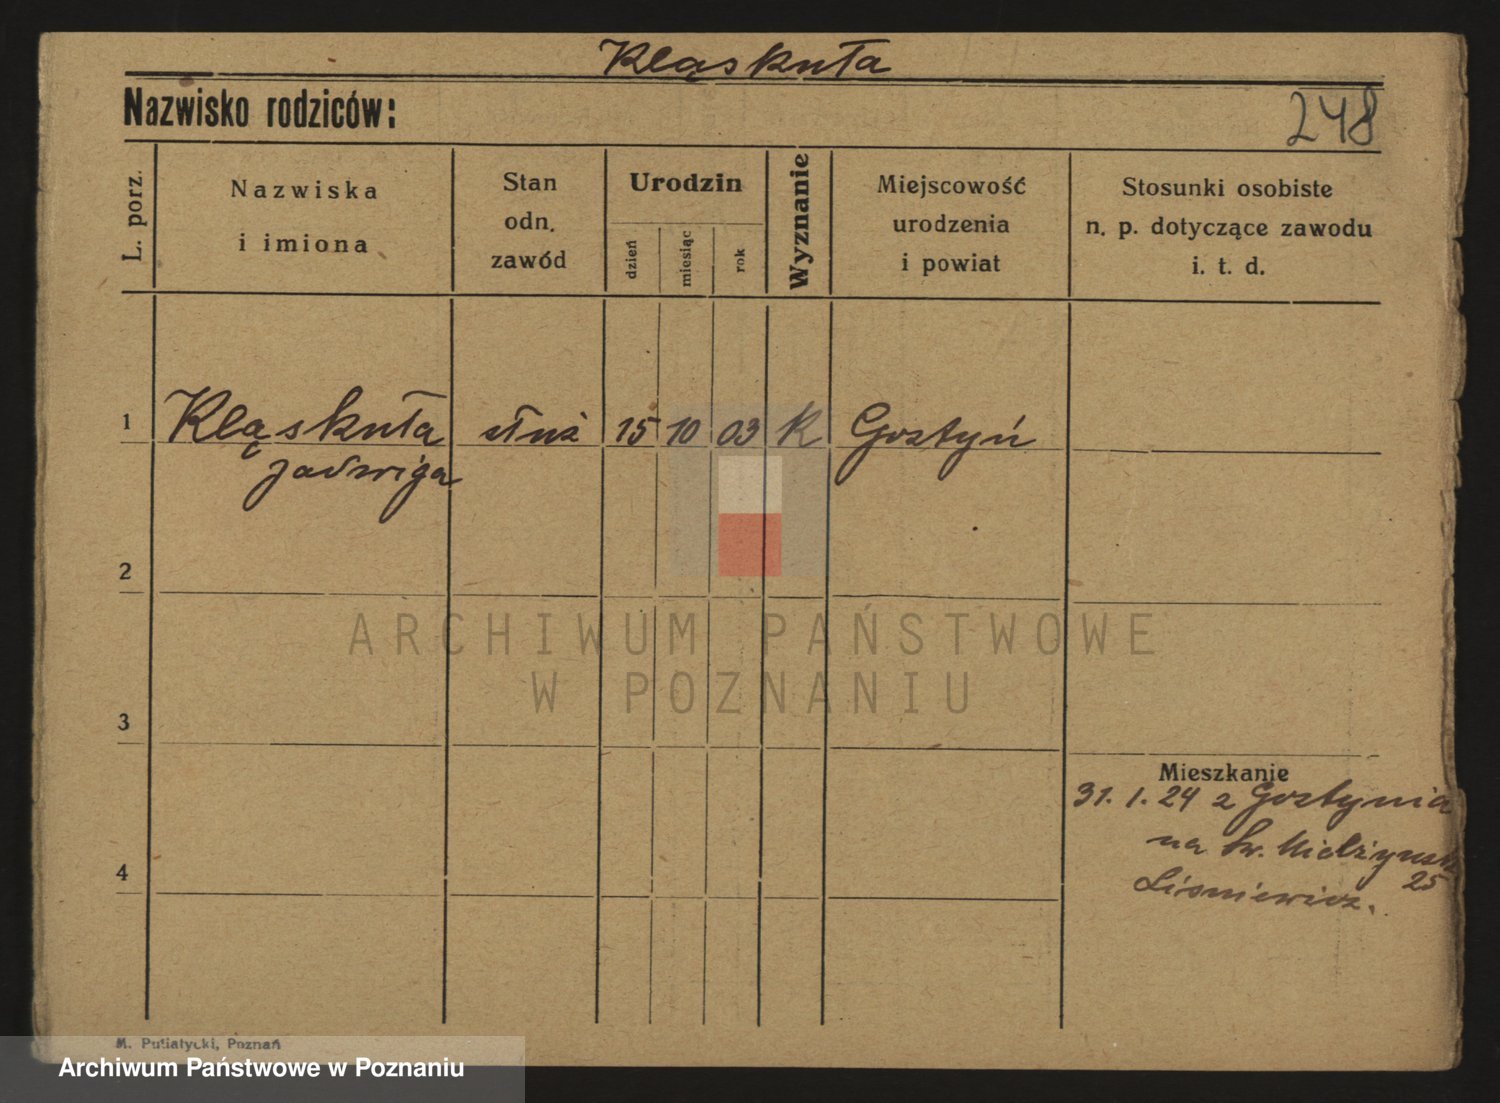 Kląskuła
Nazwisko rodziców:
248
L. porz.
Nazwiska
i imiona
Stan
odn.
zawód
Urodzin
dzień
miesiąc
rok
Wyznanie
Miejscowość
urodzenia
i powiat
Stosunki osobiste
n. p. dotyczące zawodu
i. t. d.
1 Kląskuła służ 15 10 03 K Gostyń
Jadwiga
2
ARCHIWUM PAŃSTWOWE
W POZNANIU
3
Mieszkanie
31. 1. 24 z Gostynia
na Św.
4
25
M. Putiatycki, Poznań
Archiwum Państwowe w Poznaniu